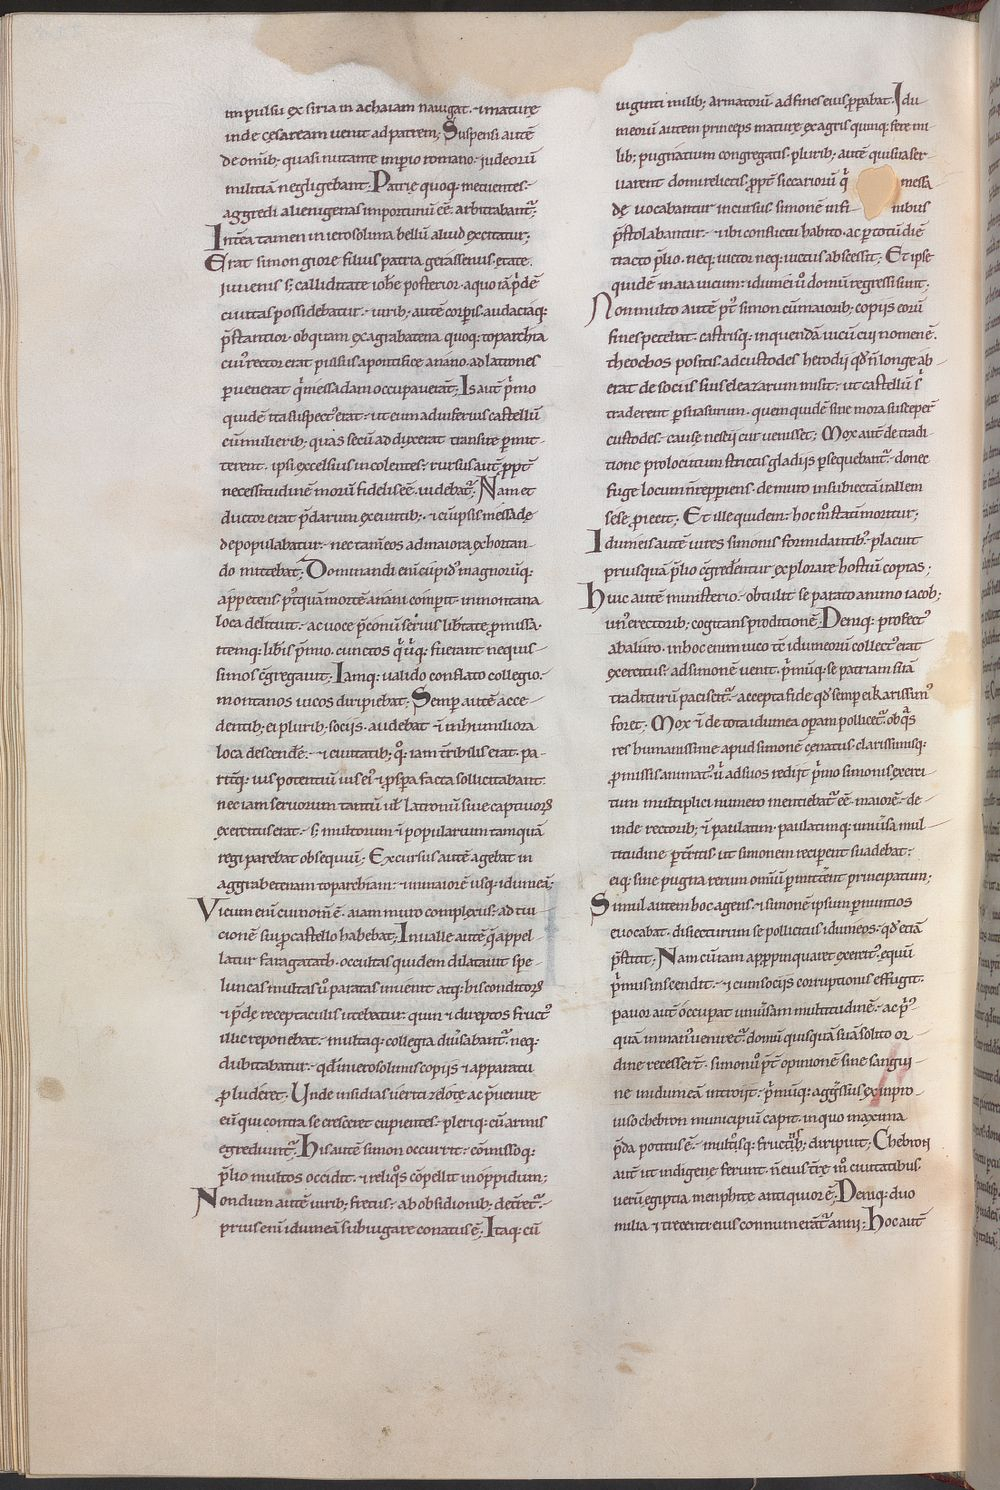 impulsu ex siria in achaiam nauigat. ⁊ mature
inde cesaream uenit ad patrem; Suspensi autē
de omib; quasi nutante imperio romano. iudeorū
militiā negligebant; Patrię quoq; metuentes.
aggredi alienigenas importunū eē arbitrabant̄;
Intēa tamen in ierosolima bellū aliud excitatur;
Erat simon giorę filius patria gerassenus. ętate
iuuenis s; calliditate ioh̄e posterior. a quo iā p̄dē
ciuitas possidebatur. uirib; autē corp̄is audaciaq;
p̄stantior. ob quam ex agrabatena quoq; toparchia
cui᷒ rector erat pulsus a pontifice anano. ad latrones
peruenerat q̄ messadam occupauerāt; Is aut̄ p̄mo
quidē ita suspect᷒ erat. ut eum ad inferius castellū
cū mulierib; quas secū adduxerat transire permit-
terent. ipsi excelsius incolentes. rursus aut̄ ppt̄
necessitudinē morū fidelis eē uidebat̄; Nam et
ductor erat p̄darum exeuntib;. ⁊ cū ipsis messadę
depopulabatur. nec tam̄ eos ad maiora exhortan-
do mittebat; Dominandi eni cupid᷒ magnorūq;
appetens. p᷒tquā mortē anani comperit. in montana
loca delituit. ac uoce p̄conū seruis libertate promissa.
itemq; lib̄is p̄mio. cunctos q̄q; fuerant nequis-
simos cgregauit; Iamq; ualido conflato collegio.
montanos uicos diripiebat; Semper autē acce-
dentib; ei plurib; sociis. audebat ⁊ in humiliora
loca descendē. ⁊ ciuitatib; q᷒. iam tribilis erat. pa-
ritq; uis potentiū ui ei᷒. pspa facta sollicitabant.
nec iam seruorum tantū ul̄ latronū siue captiuorū
exercitus erat. s; multorum ⁊ popularium tamquā
regi parebat obsequiū; Excursus autē agebat in
aggrabetenam toparchiam. ⁊ in maiorē usq; idumeā;
Vicum eni cui nom̄ ē aiam muro complexus. ad tui-
cionē sui p castello habebat; In ualle autē q̄ appel-
latur faragatath. occultas quidem dilatauit spe-
luncas multas ū paratas inuenit. atq; his conditorū
⁊ p̄dę receptaculis utebatur. quin ⁊ direptos fruct᷒
illuc reponebat. multaq; collegia diūsabant̄. neq;
dubitabatur. qd̄ in ierosolimis copiis ⁊ apparatu
pluderet; Unde insidias ueriti zelotę ac p̄uenire
eū qui contra se cresceret cupientes. pleriq; cū armis
egrediunt̄; His autē simon occurrit. comissoq;
p̄lio multos occidit. ⁊ reliq᷒s copellit in oppidum;
Nondum autē uirib; fretus. ab obsidionib; decret̄.
prius eni idumeā subiugare conatus ē; Itaq; cū
uiginti milib; armatorū ad fines eius pperabat. Idu-
meorū autem princeps mature ex agris quinq; fere mi-
lib; pugnatium congregatis. plurib; autē qui sua ser-
uarent domi relictis. ppt̄ siccariorū q̄ messa-
dę uocabantur incursus simonē in fi- nibus
p̄stolabantur. ⁊ ubi conflictu habito. ac p totū diē
tracto p̄lio. neq; uictor neq; uictus abscessit; Et ipse
quidē in aia uicum. idumei ū domū regressi sunt;
Non multo autē p᷒t simon cū maiorib; copiis eorū
fines petebat. castrisq; in quendā uicū cui nomen ē
thecohos positis. ad custodes herodii qd̄ n̄ longe ab
erat de sociis suis eleazarum misit. ut castellū s̄
traderent persuasurum. quem quidē sine mora suscepert̄
custodes. causę nescii cur uenisset; Mox aut̄ de tradi-
tione prolocutum strictis gladiis psequebant̄. donec
fugę locum n̄ repperiens. de muro in subiectā uallem
sese piecit; Et ille quidem. hoc m᷒ statī moritur;
Idumeis autē uires simonis formidantib᷒. placuit
priusquā p̄lio cgredentur explorare hostiū copias;
Huic autē ministerio. obtulit se parato animo iacob;
un᷒ e rectorib; cogitans proditionē; Deniq; profect᷒
ab aluro. in hoc enim uico tē idumeorū collect᷒ erat
exercitus. ad simonē uenit. p̄mūq; se patriam suā
traditurū paciscit̄. accepta fide qd̄ semp ei karissim᷒
foret; Mox ⁊ de tota idumea opam pollicet̄. ob q̄s
res humanissime apud simonē cenatus. clarissimisq;
pmissis animat᷒. ū ad suos rediit p̄mo simonis exerci-
tum multiplici numero mentiebat̄ eē maiorē. de-
inde rectorib; ⁊ paulatim. paulatimq; uniūsa mul-
titudine ptēritis. ut simonem reciperent suadebat.
eiq; sine pugna rerum omiū pmittēnt principatum;
Simul autem hoc agens. ⁊ simonē ipsum p nuntios
euocabat. disiecturum se pollicitus idumeos. qd̄ etiā
p̄stitit; Nam cū iam appropinquaret exercit᷒. equū
p̄mus inscendit. ⁊ cum sociis corruptionis effugit.
pauor aut̄ occupat uniūsam multitudinē. ac p̄᷒-
quā in man᷒ uenirect̄. domū quisquā suā solito or-
dine recessert̄. simon ū p̄t opinionē sine sangui-
ne in idumeā introiit. p̄mūq; aggressus ex inpro-
uiso chebron municipiū capit. in quo maxima
p̄da potitus ē. multosq; fructib; diripiut; Chebron
aut̄ ut indigenę ferunt. n̄ eius t̄rę m᷒ ciuitatibus
uerū egiptia memphite antiquior ē; Deniq; duo
milia ⁊ trecenti eius connumerāt̄ anni; Hoc aut̄